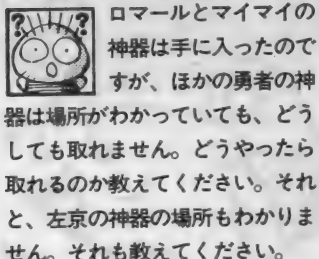 ? ?
ロマールとマイマイの
神器は手に入ったので
すが、ほかの勇者の神
器は場所がわかっていても、どう
しても取れません。どうやったら
取れるのか教えてください。それ
と、左京の神器の場所もわかりま
せん。それも教えてください。